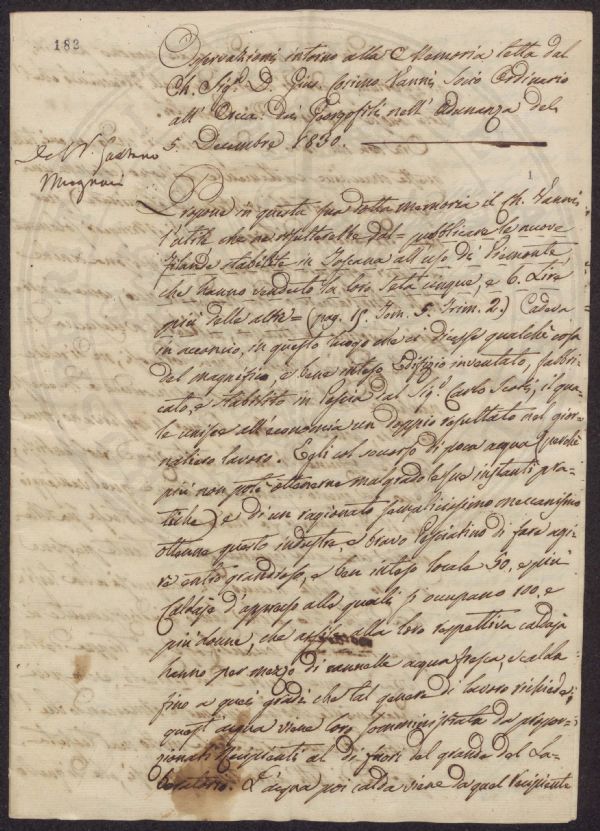 182
Osservazioni intorno alla Memoria letta dal
Ch. Sigr. D. Gius. Cosimo Vanni Socio Ordinario
all' Accia. dei Georgofili nell' Adunanza del
5. Decembre 1830.
de V. Gaetano
Magnani
1
Propone in questa sua dotta memoria il Ch. Vanni
l'utile che ne risulterebbe dal = pubblicare le nuove
filande stabilite in Toscana all' uso di Piemonte
che hanno venduto la loro Seta cinque, e 6. Lire
più delle altre = (pag. 15. Tom. 5. Trim. 2.) Cadeva
in acconcio, in questo luogo che ci dicesse qualche cosa
del magnifico, e bene inteso Edifizio inventato, fabbri-
cato, e stabilito in Pescia dal Sigr. Carlo Scoti, il qua-
le unisce all' economia un doppio resultato nel gior-
naliero lavoro. Egli col soccorso di poca acqua (perchè
più non potè ottenerne malgrado le sue instanti pra-
tiche) e di un ragionato semplicissimo meccanismo
ottenne questo industre, e bravo Pesciatino di fare agi-
re entro grandioso, e ben inteso locale 50. e più
Caldaje d'appresso alle quali si occupano 100. e
più donne, che alla loro respettiva caldaja
hanno per mezzo di cannelle acqua fresca, e calda
fino a quei gradi che tal genere di lavoro richiede;
quest' acqua viene loro somministrata da propor-
zionati Recipienti al di fuori del grande del La-
boratorio. L'acqua poi calda viene da quel Recipiente